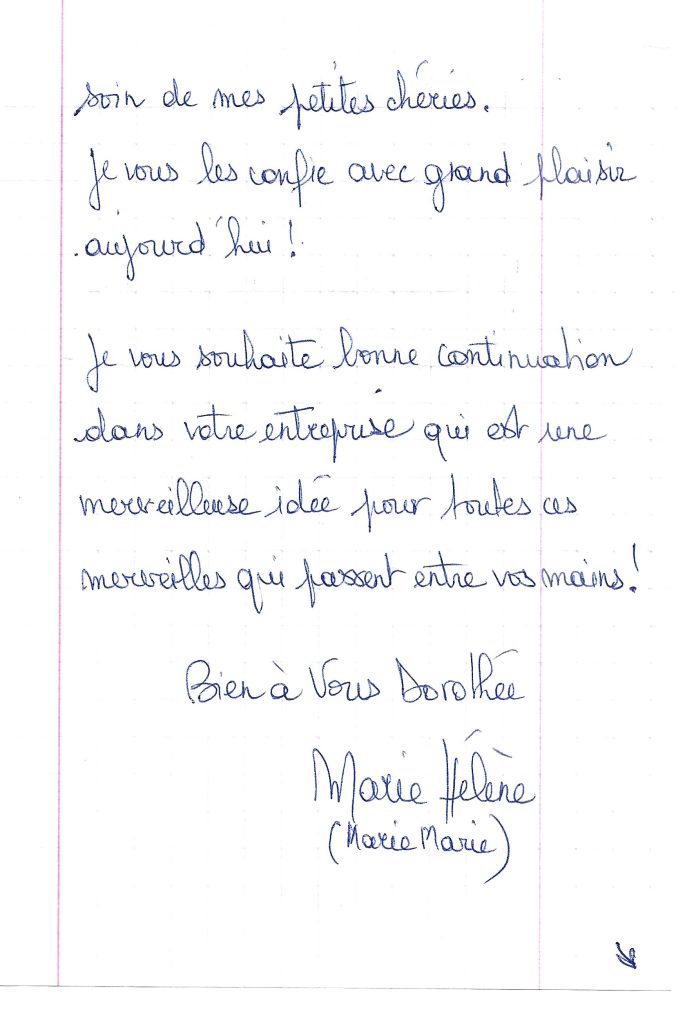 soin de mes petites chéries.
Je vous les confie avec grand plaisir
aujourd'hui !
Je vous souhaite bonne continuation
dans votre entreprise qui est une
merveilleuse idée pour toutes ces
merveilles qui passent entre vos mains !
Bien à Vous Dorothée
Marie Hélène
(Marie Marie)